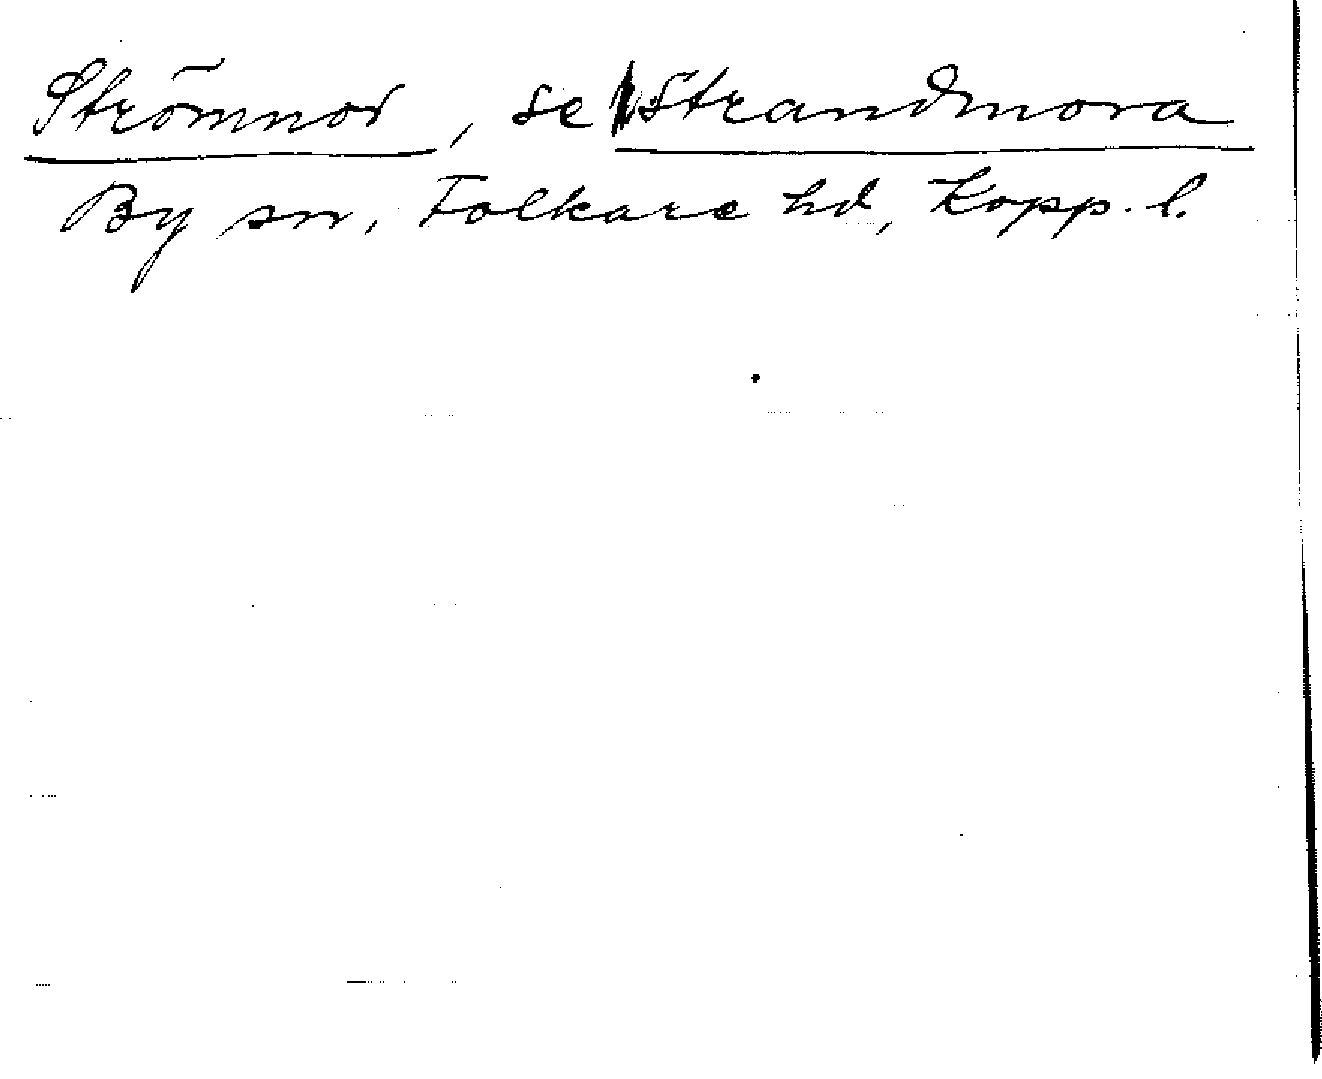 Strömnor, se Strandmora
By sn, Folkare hd, Kopp. l.